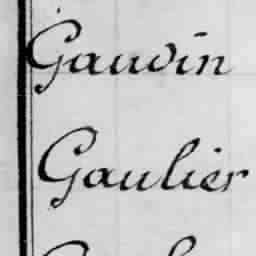 Gauvin
Gaulier